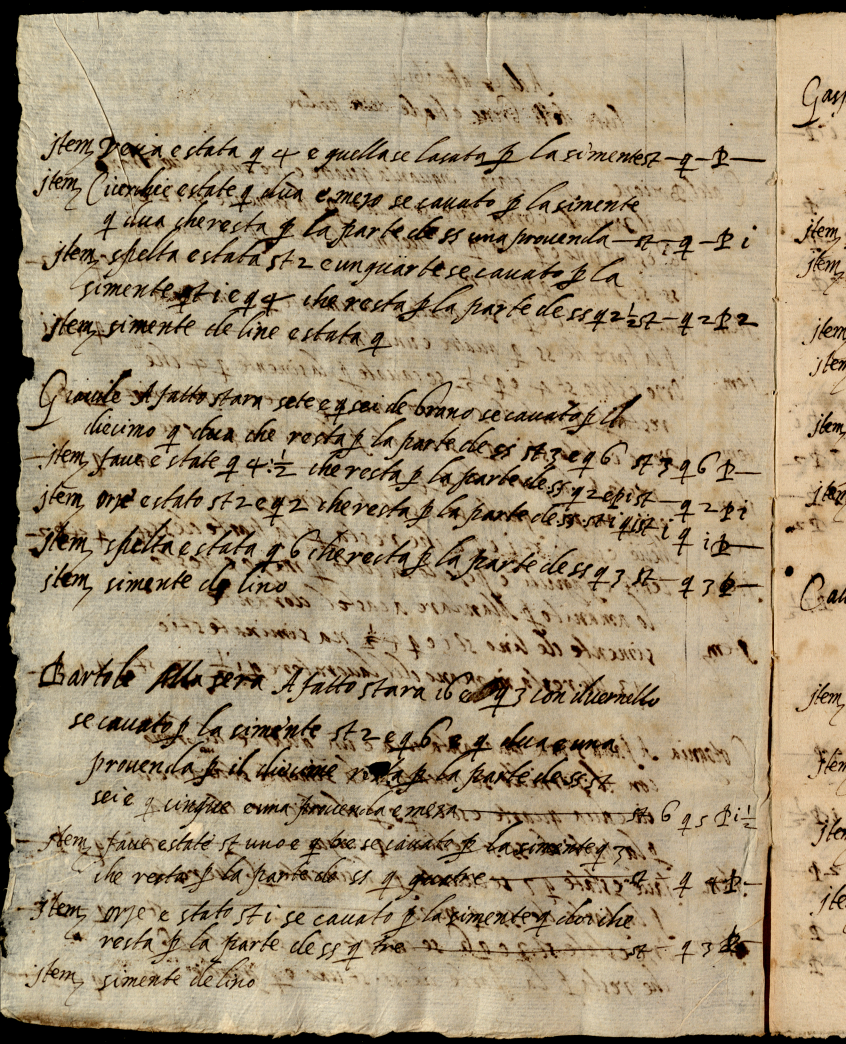 jtem Veza e stata q 4 e quella se lasata p la simente st — q — P —
jtem Cicerchie e state q dua e mezo se cavato p la simente
q dua che resta p la parte de ss una provenda — st — q — P i
jtem spelta e stata st 2 e un quarte se cavato p la
simente st i e q 4 che resta p la parte de ss q 2 ½ st — q 2 P 2
jtem simente de line e stata q
A fatto stara sete e q sei de Grano se cavato p il
diecimo q dua che resta p la parte de ss st 3 e q 6 st 3 q 6 P —
jtem fave e state q 4 ½ che resta p la parte de ss q 2 e p i st — q 2 P i
jtem orje e stato st 2 e q 2 che resta p la parte de ss st i q i st i q i P —
jtem spelta e stata q 6 che resta p la parte de ss q 3 st — q 3 P —
jtem simente de lino
Bartole alla sera A fatto stara i6 e q 3 con
se cavato p la simente st 2 e q 6 e q dua e una
provenda p il diecime resta p la parte de ss st
sei e q cinque e una provenda e meza — st 6 q 5 P i ½
jtem fave e state st uno e q tre se cavate p la simente q 3
che resta p la parte de ss q quatre — st — q 4 P —
jtem orje e stato st i se cavato p la simente q doi che
resta p la parte de ss q tre — st — q 3 P
jtem simente de lino
Gasp
jtem
jtem
jtem
jtem
jtem
jtem
jtem
jtem
jtem
jte